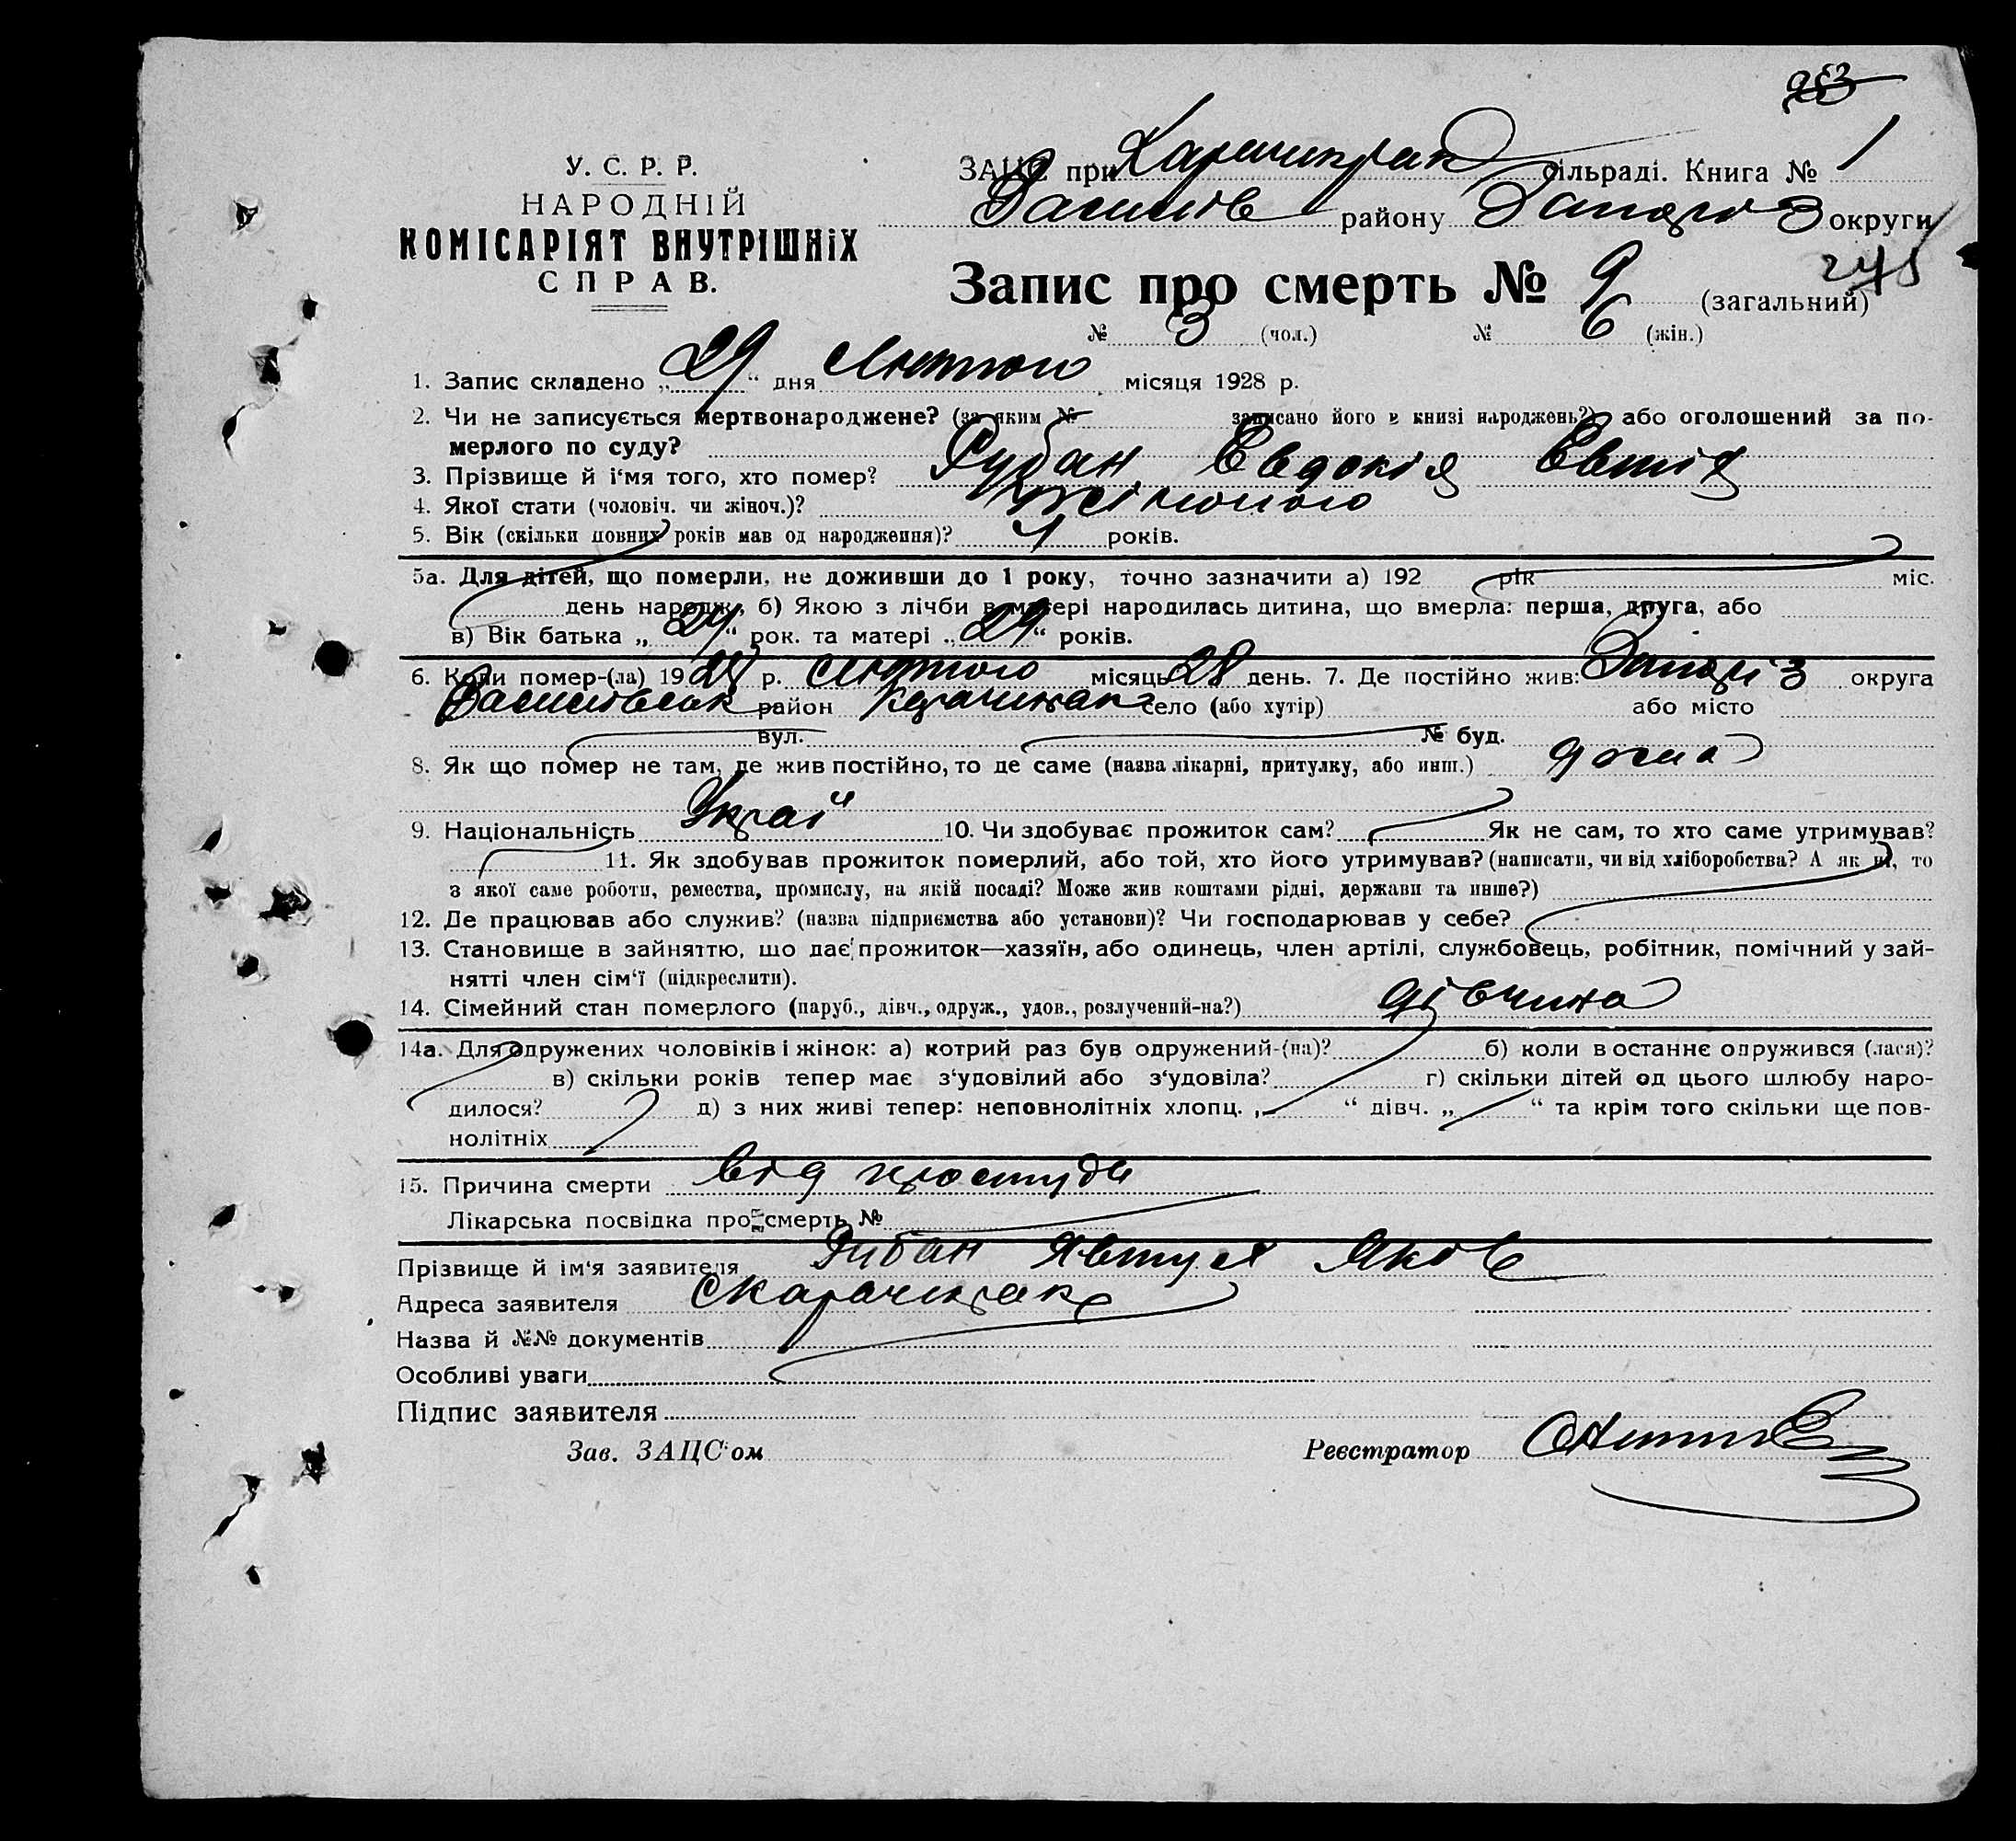 953
У. С. Р. Р.
НАРОДНІЙ
КОМІСАРІЯТ ВНУТРІШНіХ
СПРАВ.
ЗАЦС при сільраді. Книга № 1
Василів району Запоріз округи
245
Запис про смерть № 9 (загальний)
№ 3 (чол.) № 6 (жін.)
1. Запис складено „ 29 “ дня Лютого місяця 1928 р.
2. Чи не записується мертвонароджене? (за яким № записано його в книзі народжень?) або оголошений за по-
мерлого по суду?
3. Прізвище й і‘мя того, хто помер? Рубан Евдокія Евтиф
4. Якої стати (чоловіч. чи жіноч.)? жіночого
5. Вік (скільки повних років мав од народження)? 4 років.
5а. Для дітей, що померли, не доживши до 1 року, точно зазначити а) 192 рік міс.
день народж., б) Якою з лічби в матері народилась дитина, що вмерла: перша, друга, або
в) Вік батька „ 24 “ рок. та матері „ 24 “ років.
6. Коли помер-(ла) 1928 р. Лютого місяць 28 день. 7. Де постійно жив: Запоріз округа
Василівськ район Карачикрак село (або хутір) або місто
вул. № буд.
8. Як що помер не там, де жив постійно, то де саме (назва лікарні, притулку, або инш.) дома
9. Національність Украї 10. Чи здобуває прожиток сам? Як не сам, то хто саме утримував?
11. Як здобував прожиток померлий, або той, хто його утримував? (написати, чи від хліборобства? А як ні, то
з якої саме роботи, ремества, промислу, на якій посаді? Може жив коштами рідні, держави та инше?)
12. Де працював або служив? (назва підприємства або установи)? Чи господарював у себе?
13. Становище в зайняттю, що дає прожиток—хазяїн, або одинець, член артілі, службовець, робітник, помічний у зай-
нятті член сім‘ї (підкреслити).
14. Сімейний стан померлого (паруб., дівч., одруж., удов., розлучений-на?) дівчина
14а. Для одружених чоловіків і жінок: а) котрий раз був одружений-(на)? б) коли в останнє одружився (лася)?
в) скільки років тепер має з‘удовілий або з‘удовіла? г) скільки дітей од цього шлюбу наро-
дилося? д) з них живі тепер: неповнолітніх хлопц. „ “ дівч. „ “ та крім того скільки ще пов-
нолітніх
15. Причина смерти від простуди
Лікарська посвідка про смерть №
Прізвище й ім‘я заявителя Рубан Явтух Яков
Адреса заявителя С Карачикрак
Назва й №№ документів
Особливі уваги
Підпис заявителя
Зав. ЗАЦС‘ом Реєстратор